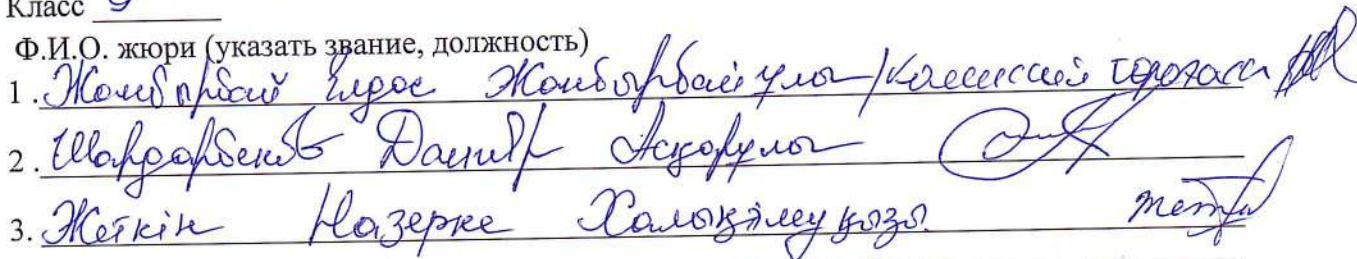 Класс 9
Ф.И.О. жюри (указать звание, должность)
1. Жанбырбай Елдос Жанбырбайұлы / Комиссия төрағасы
2. Шардарбеков Данияр Асқарұлы
3. Жеткін Назерке Халықілеуқызы